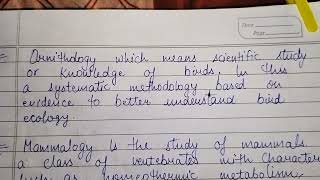 Date
Page
= Ornithology which means scientific study
or knowledge of birds. In this
a systematic methodology based on
evidence to better understand bird
ecology.
= Mammalogy is the study of mammals
a class of vertebrates with character
such as homeothermic metabolism,